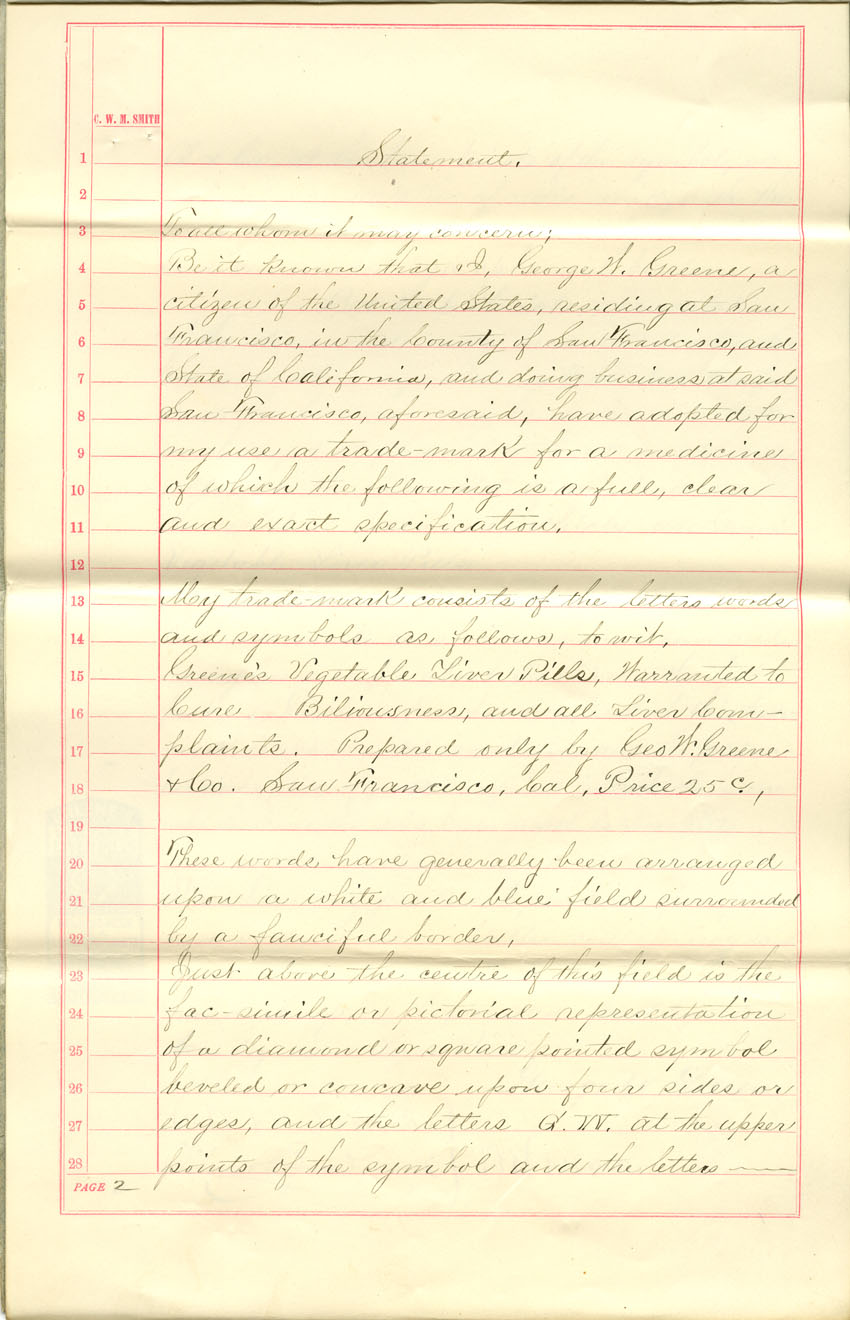 C. W. M. SMITH
1 Statement.
2
3 To all whom it may concern;
4 Be it known that I, George W. Greene, a
5 citizen of the United States, residing at San
6 Francisco, in the County of San Francisco, and
7 State of California, and doing business at said
8 San Francisco, aforesaid, have adopted for
9 my use a trade-mark for a medicine
10 of which the following is a full, clear
11 and exact specification.
12
13 My trade-mark consists of the letters words
14 and symbols as follows, to wit,
15 Greene's Vegetable Liver Pills, Warranted to
16 Cure Biliousness, and all Liver Com-
17 plaints. Prepared only by Geo W. Greene
18 & Co. San Francisco, Cal, Price 25 c,
19
20 These words have generally been arranged
21 upon a white and blue field surrounded
22 by a fanciful border,
23 Just above the centre of this field is the
24 fac-simile or pictorial representation
25 of a diamond or square pointed symbol
26 beveled or concave upon four sides or
27 edges, and the letters G. W. at the upper
28 points of the symbol and the letters —
PAGE 2